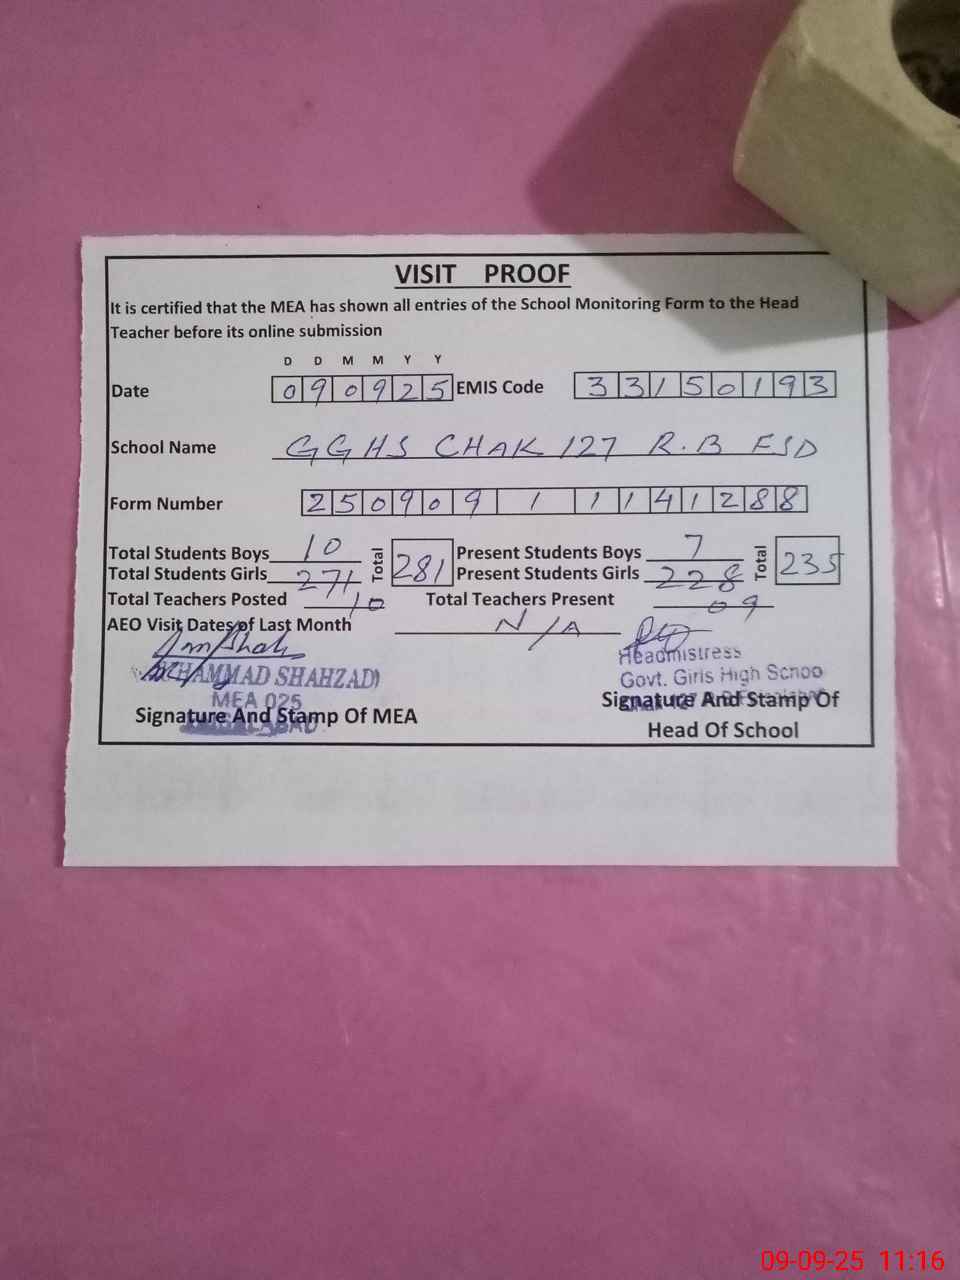 VISIT PROOF
It is certified that the MEA has shown all entries of the School Monitoring Form to the Head
Teacher before its online submission
D D M M Y Y
Date 090925 EMIS Code 33150193
School Name GGHS CHAK 127 R.B FSD
Form Number 250909 1 1141288
Total Students Boys 10 Total 281 Present Students Boys 7 Total 235
Total Students Girls 271 Present Students Girls 228
Total Teachers Posted 10 Total Teachers Present 09
AEO Visit Dates of Last Month N/A
MUHAMMAD SHAHZAD
MEA 025
Signature And Stamp Of MEA
Headmistress
Govt. Girls High School
Signature And Stamp Of
Head Of School
09-09-25 11:16